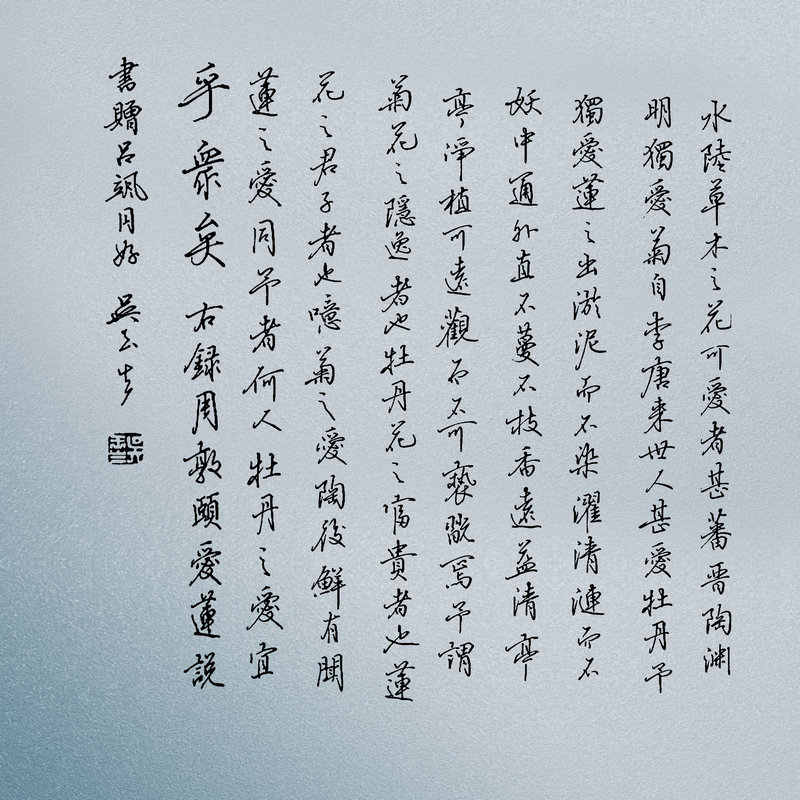 水陸草木之花可愛者甚蕃晋陶渊
明獨愛菊自李唐来世人甚愛牡丹予
獨愛蓮之出淤泥而不染濯清漣而不
妖中通外直不蔓不枝香遠益清亭
亭淨植可遠觀而不可褻翫焉予謂
菊花之隱逸者也牡丹花之富貴者也蓮
花之君子者也噫菊之愛陶後鮮有聞
蓮之愛同予者何人牡丹之愛宜
乎衆矣 右録周敦頤愛蓮説
書贈呂颯同好 吳玉生